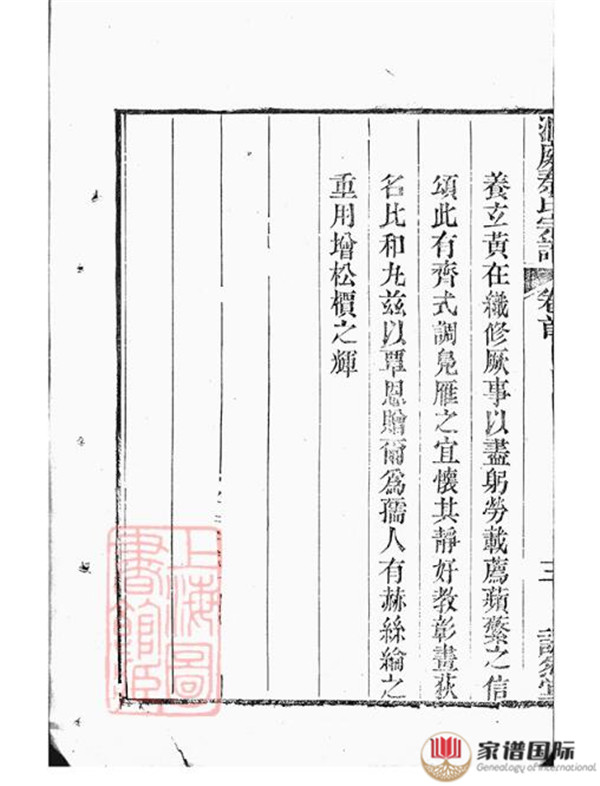 洞庭秦氏宗譜 卷首 三
養立黃在織修厥事以盡躬勞載薦蘋蘩之信
頌此有齊式調鳧雁之宜懷其靜好教彰畫荻
名比和丸茲以覃恩贈爾為孺人有赫絲綸之
重用增松檟之輝
上海圖
書館藏
家谱国际
Genealogy of International